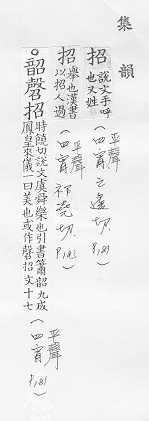 集韻
招 說文手呼也又姓 (平聲 四宵 之遙切 P,181)
招 舉也漢書以招人過 (平聲 四宵 祁堯切 P,181)
。韶磬招 時饒切說文虞舜樂也引書簫韶九成鳳皇來儀一曰美也或作磬招文十七 (平聲 四宵 P,181)